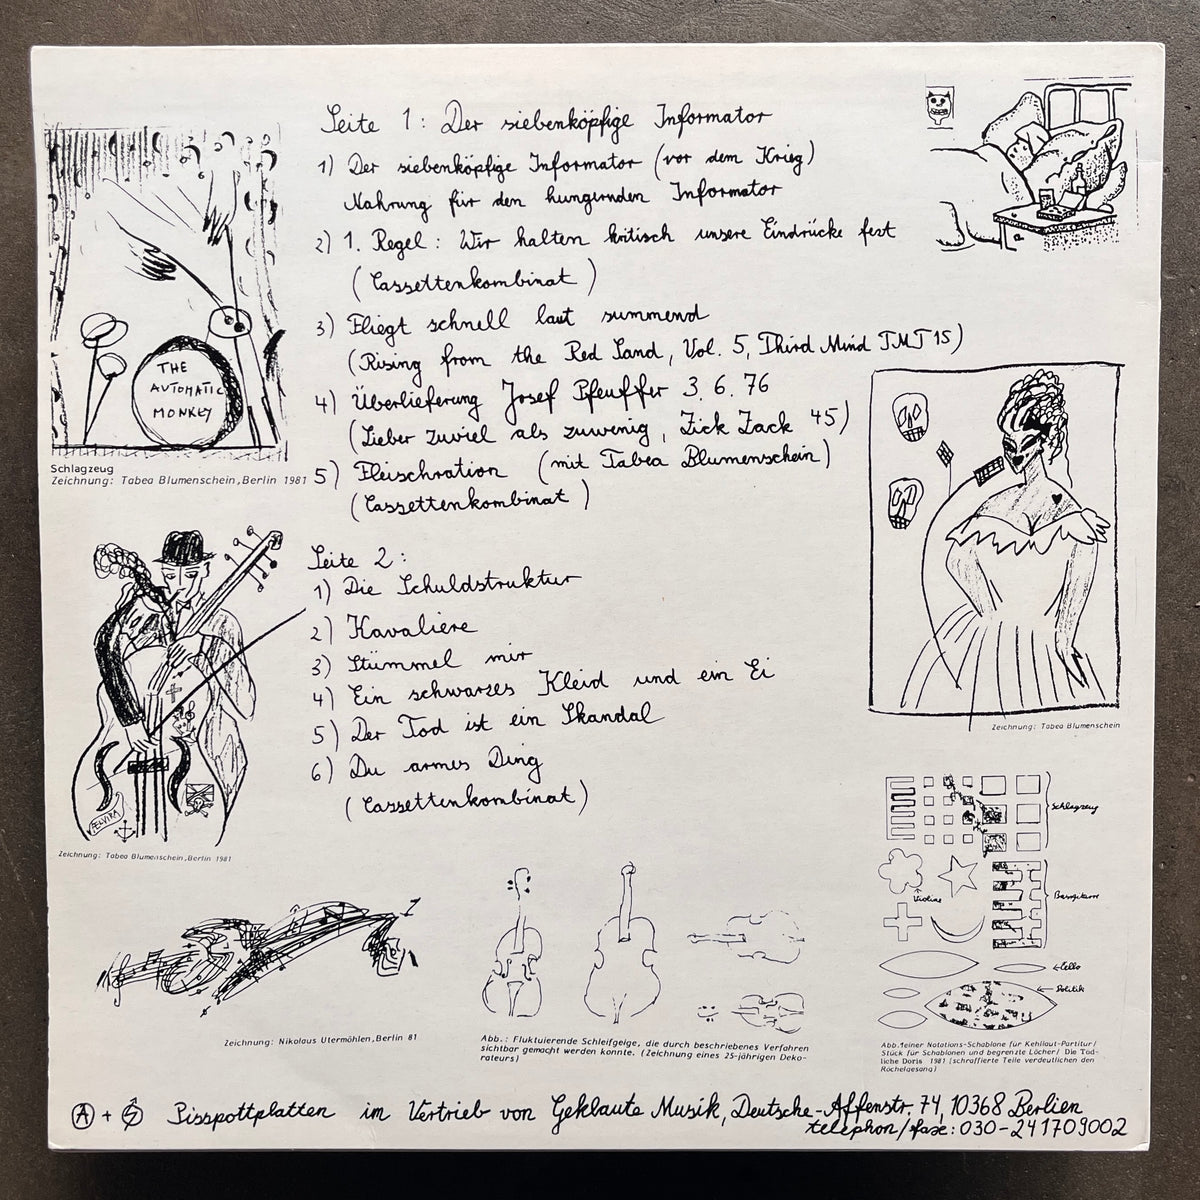 Seite 1: Der siebenköpfige Informator
1) Der siebenköpfige Informator (vor dem Krieg)
Nahrung für den hungernden Informator
2) 1. Regel: Wir halten kritisch unsere Eindrücke fest
(Cassettenkombinat)
3) Fliegt schnell laut summend
(Rising from the Red Sand, Vol. 5, Third Mind TMT 15)
4) Überlieferung Josef Pfeuffer 3. 6. 76
(Lieber zuviel als zuwenig, Zick Zack 45)
5) Fleischration (mit Tabea Blumenschein)
(Cassettenkombinat)
THE
AUTOMATIC
MONKEY
Schlagzeug
Zeichnung: Tabea Blumenschein, Berlin 1981
Seite 2:
1) Die Schuldstruktur
2) Kavaliere
3) Stümmel mir
4) Ein schwarzes Kleid und ein Ei
5) Der Tod ist ein Skandal
6) Du armes Ding
(Cassettenkombinat)
Zeichnung: Tabea Blumenschein
ELVIRA
Zeichnung: Tabea Blumenschein, Berlin 1981
Schlagzeug
Violine
Bassgitarre
Cello
Politik
Zeichnung: Nikolaus Utermöhlen, Berlin 81
Abb.: Fluktuierende Schleifgeige, die durch beschriebenes Verfahren
sichtbar gemacht werden konnte. (Zeichnung eines 25-jährigen Deko-
rateurs)
Abb. einer Notations-Schablone für Kehllaut-Partitur/
Stück für Schablonen und begrenzte Löcher/ Die Töd-
liche Doris 1981 (schraffierte Teile verdeutlichen den
Röchelgesang)
A + S Pisspottplatten im Vertrieb von Geklaute Musik, Deutsche-Affenstr. 74, 10368 Berlien
telephon/fase: 030-241709002